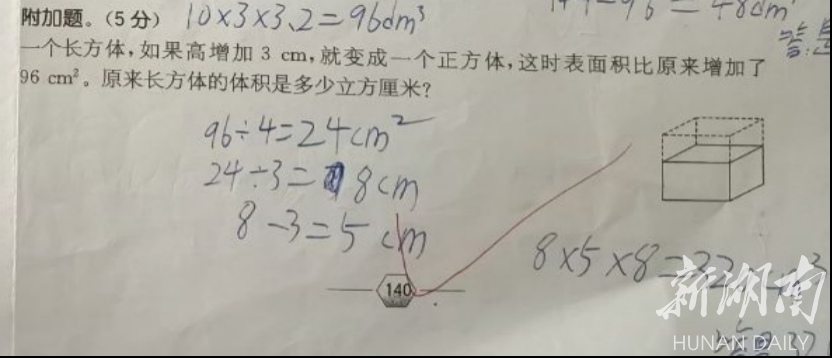 附加题。(5分) 10×3×3.2=96dm³
一个长方体,如果高增加 3 cm,就变成一个正方体,这时表面积比原来增加了
96 cm²。原来长方体的体积是多少立方厘米?
96÷4=24cm²
24÷3= 8cm
8-3=5 cm
8×5×8=32
140
新湖南
HUNAN DAILY